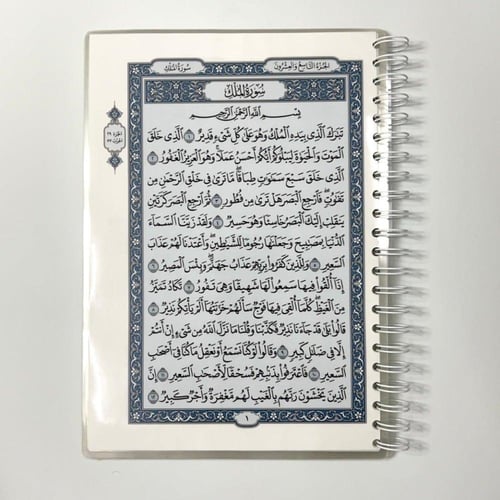 سُورَةُ المُلْكِ
الجُزْءُ التَّاسِعُ وَالعِشْرُونَ
سُورَةُ المُلْكِ
بِسْمِ اللَّهِ الرَّحْمَٰنِ الرَّحِيمِ
تَبَٰرَكَ الَّذِي بِيَدِهِ الْمُلْكُ وَهُوَ عَلَىٰ كُلِّ شَيْءٍ قَدِيرٌ ١ الَّذِي خَلَقَ
الْمَوْتَ وَالْحَيَوٰةَ لِيَبْلُوَكُمْ أَيُّكُمْ أَحْسَنُ عَمَلًا وَهُوَ الْعَزِيزُ الْغَفُورُ ٢
الَّذِي خَلَقَ سَبْعَ سَمَٰوَٰتٍ طِبَاقًا مَّا تَرَىٰ فِي خَلْقِ الرَّحْمَٰنِ مِن
تَفَٰوُتٍ فَارْجِعِ الْبَصَرَ هَلْ تَرَىٰ مِن فُطُورٍ ٣ ثُمَّ ارْجِعِ الْبَصَرَ كَرَّتَيْنِ
يَنقَلِبْ إِلَيْكَ الْبَصَرُ خَاسِئًا وَهُوَ حَسِيرٌ ٤ وَلَقَدْ زَيَّنَّا السَّمَآءَ
الدُّنْيَا بِمَصَٰبِيحَ وَجَعَلْنَٰهَا رُجُومًا لِّلشَّيَٰطِينِ وَأَعْتَدْنَا لَهُمْ عَذَابَ
السَّعِيرِ ٥ وَلِلَّذِينَ كَفَرُوا بِرَبِّهِمْ عَذَابُ جَهَنَّمَ وَبِئْسَ الْمَصِيرُ ٦
إِذَآ أُلْقُوا فِيهَا سَمِعُوا لَهَا شَهِيقًا وَهِيَ تَفُورُ ٧ تَكَادُ تَمَيَّزُ
مِنَ الْغَيْظِ كُلَّمَآ أُلْقِيَ فِيهَا فَوْجٌ سَأَلَهُمْ خَزَنَتُهَآ أَلَمْ يَأْتِكُمْ نَذِيرٌ ٨
قَالُوا بَلَىٰ قَدْ جَآءَنَا نَذِيرٌ فَكَذَّبْنَا وَقُلْنَا مَا نَزَّلَ اللَّهُ مِن شَيْءٍ إِنْ أَنتُمْ
إِلَّا فِي ضَلَٰلٍ كَبِيرٍ ٩ وَقَالُوا لَوْ كُنَّا نَسْمَعُ أَوْ نَعْقِلُ مَا كُنَّا فِيٓ أَصْحَٰبِ
السَّعِيرِ ١٠ فَاعْتَرَفُوا بِذَنۢبِهِمْ فَسُحْقًا لِّأَصْحَٰبِ السَّعِيرِ ١١ إِنَّ
الَّذِينَ يَخْشَوْنَ رَبَّهُم بِالْغَيْبِ لَهُم مَّغْفِرَةٌ وَأَجْرٌ كَبِيرٌ ١٢
١
الجزء ٢٩